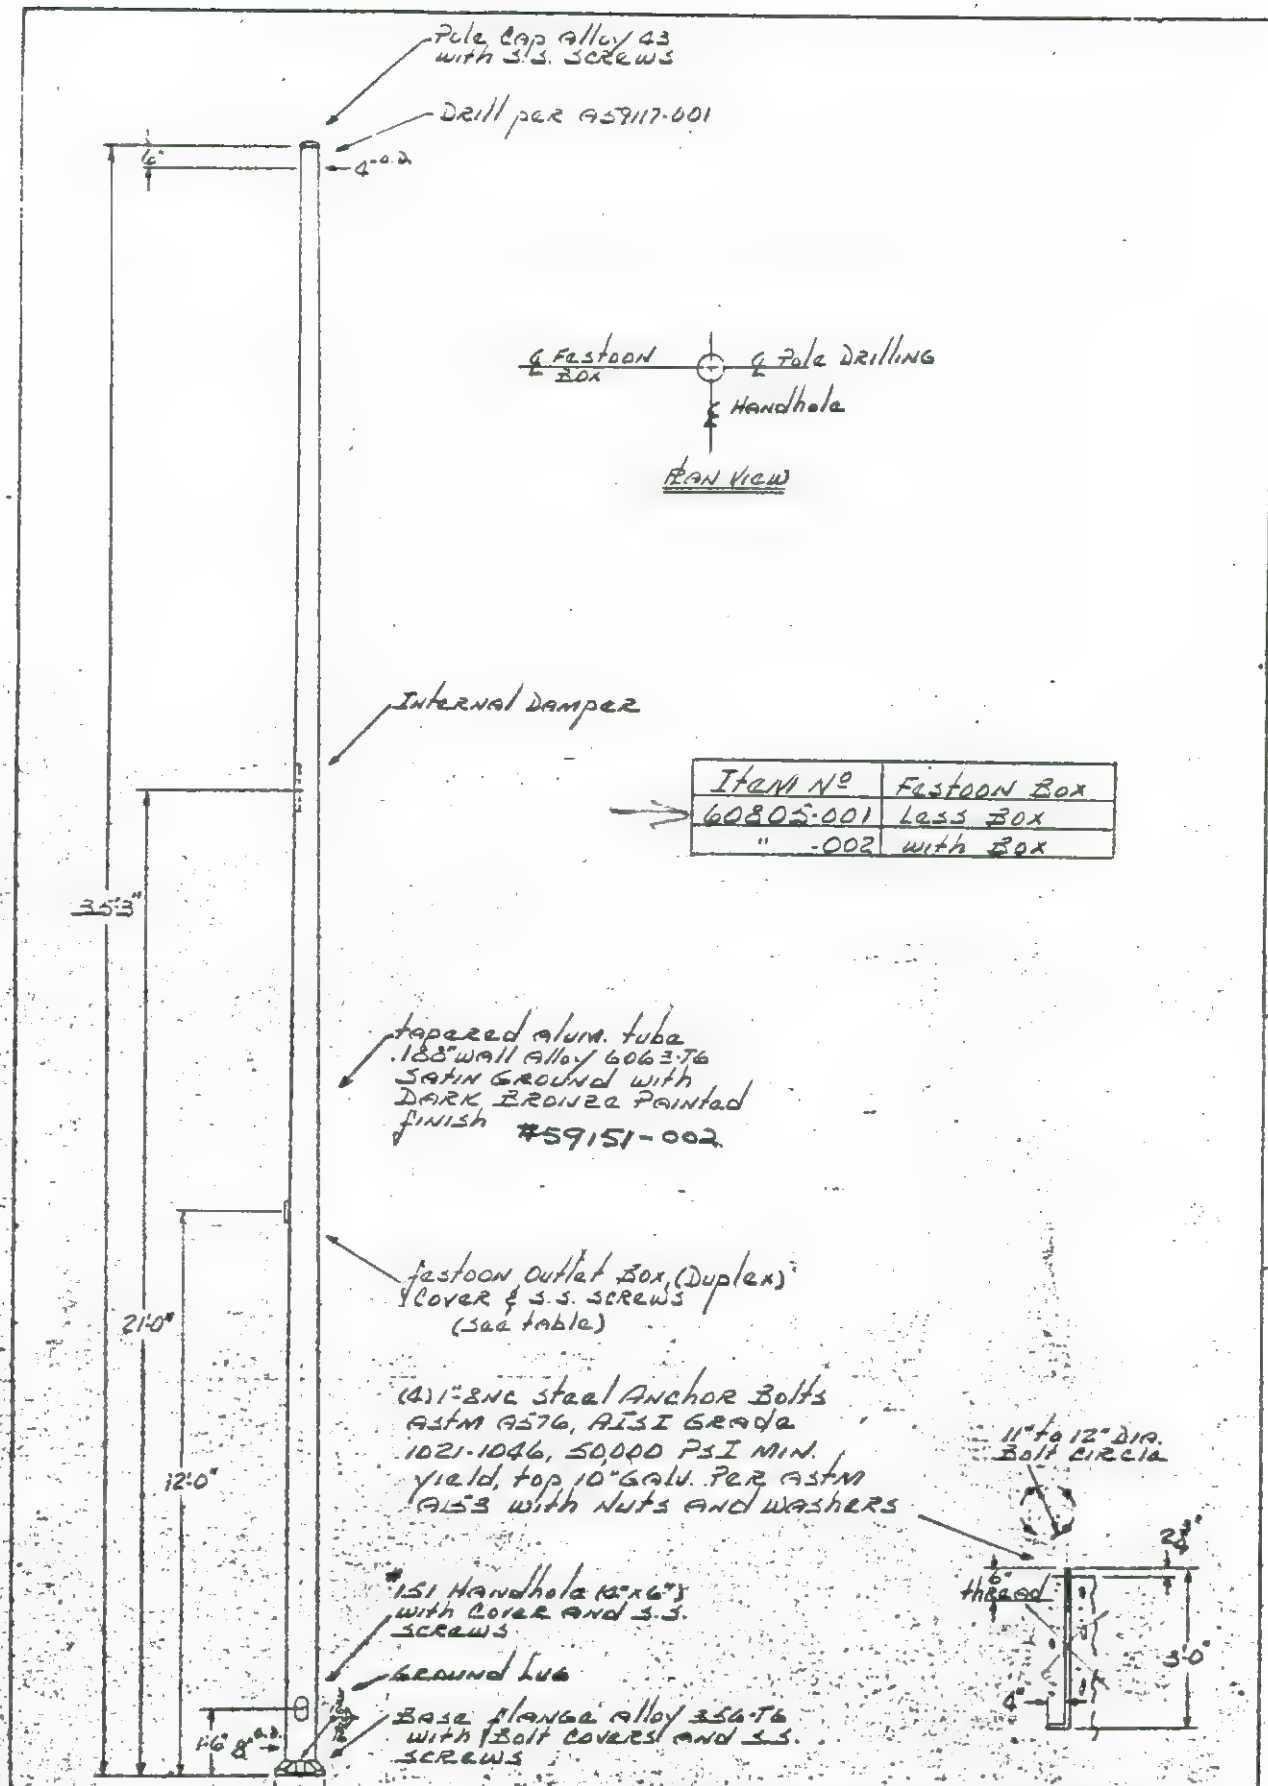 Pole Cap Alloy 43
with S.S. SCREWS
DRILL per A59117-001
6"
4" O.D.
℄ FESTOON
BOX
℄ Pole DRILLING
℄ HANDhole
PLAN VIEW
INTERNAL DAMPER
ITEM Nº FESTOON BOX
60805-001 LESS BOX
" -002 with BOX
35'3"
tapered alum. tube
.188" WALL Alloy 6063-T6
SATIN GROUND with
DARK BRONZE PAINTED
FINISH #59151-002
festoon Outlet Box, (Duplex)
COVER & S.S. SCREWS
(see table)
21'-0"
(4) 1"-8NC steel ANCHOR Bolts
ASTM A576, AISI GRADE
1021-1046, 50,000 PSI MIN.
yield, top 10" GALV. PER ASTM
A153 with NUTS AND WASHERS
11" to 12" DIA.
Bolt CIRCLE
12'-0"
6"
thread
3'-0"
4"
#151 HANDhole (4"x6")
with COVER AND S.S.
SCREWS
GROUND LUG
BASE FLANGE Alloy 356-T6
with Bolt COVERS AND S.S.
SCREWS
1'-6"
8" O.D.